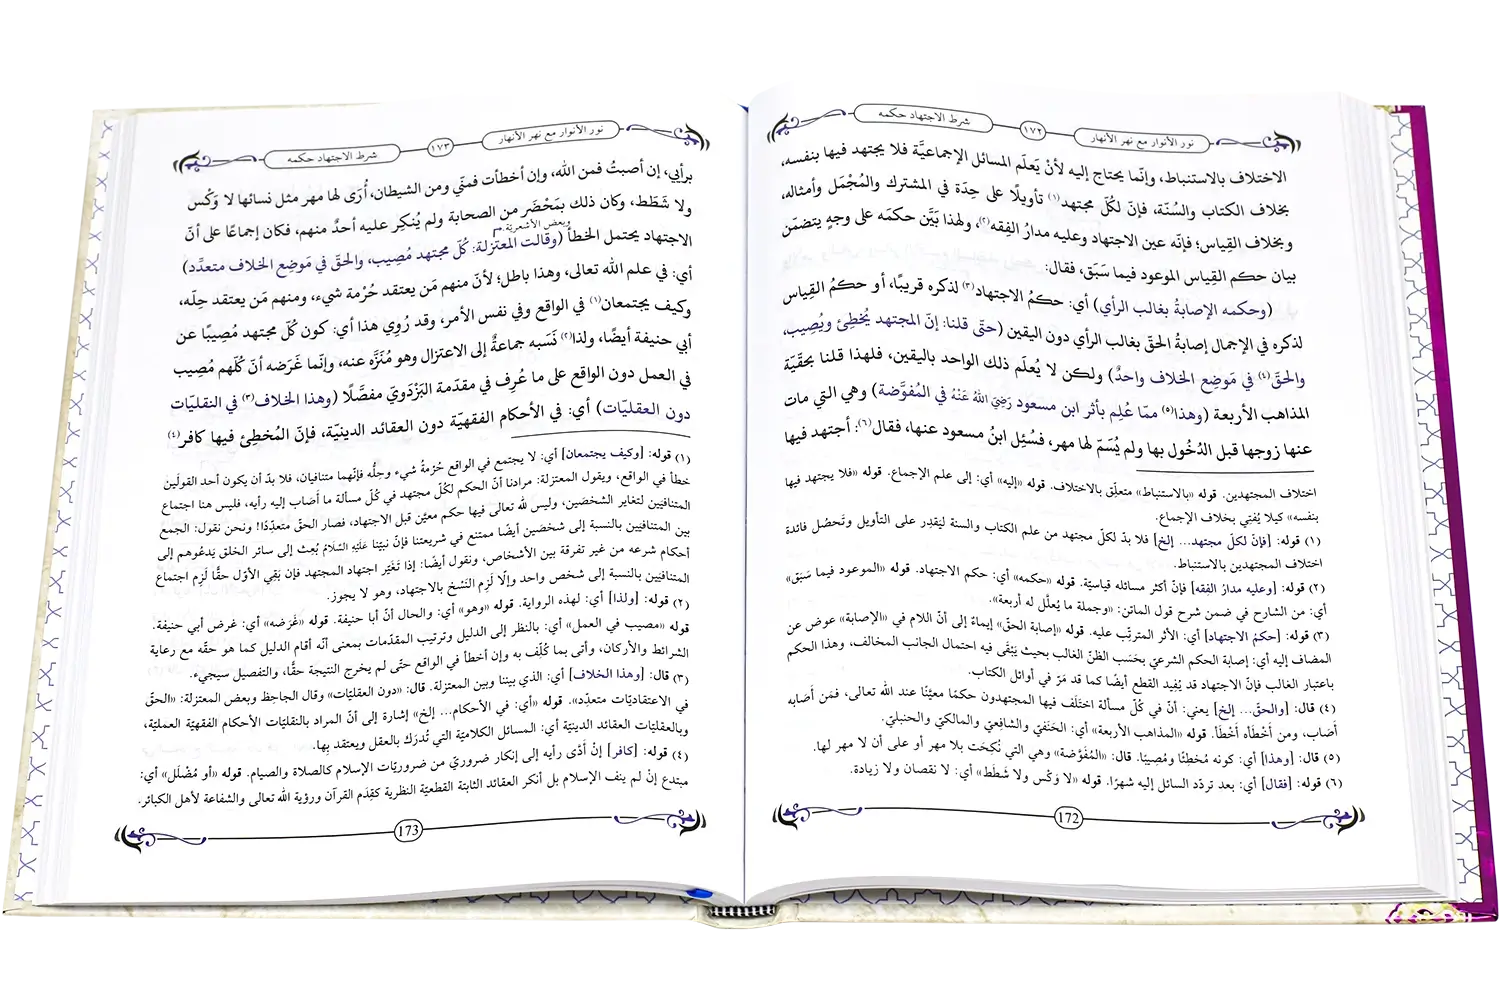 نور الأنوار مع نهر الأنهار
١٧٢
شرط الاجتهاد حكمه
الاختلاف بالاستنباط، وإنّما يحتاج إليه لأنْ يَعلَم المسائل الإجماعيَّة فلا يجتهد فيها بنفسه،
بخلاف الكتاب والسُنّة، فإنّ لكلّ مجتهد(١) تأويلًا على حِدَة في المشترك والمُجْمَل وأمثاله،
وبخلاف القِياس؛ فإنّه عين الاجتهاد وعليه مدارُ الفِقه(٢)، ولهذا بَيَّن حكمَه على وجهٍ يتضمّن
بيان حكم القِياس الموعود فيما سَبَق، فقال:
(وحكمه الإصابةُ بغالب الرأي) أي: حكمُ الاجتهاد(٣) لذكره قريبًا، أو حكمُ القِياس
لذكره في الإجمال إصابةُ الحقّ بغالب الرأي دون اليقين (حتّى قلنا: إنّ المجتهد يُخطِئ ويُصِيب،
والحقّ(٤) في مَوضِع الخلاف واحدٌ) ولكن لا يُعلَم ذلك الواحد باليقين، فلهذا قلنا بحقّيّة
المذاهب الأربعة (وهذا(٥) ممّا عُلِم بأثر ابن مسعود رَضِيَ اللهُ عَنْهُ في المُفوَّضة) وهي التي مات
عنها زوجها قبل الدُخُول بها ولم يُسَمّ لها مهر، فسُئِل ابنُ مسعود عنها، فقال(٦): أجتهد فيها
اختلاف المجتهدين. قوله «بالاستنباط» متعلِّق بالاختلاف. قوله «إليه» أي: إلى علم الإجماع. قوله «فلا يجتهد فيها
بنفسه» كيلا يُفتِي بخلاف الإجماع.
(١) قوله: [فإنّ لكلّ مجتهد... إلخ] فلا بدّ لكلّ مجتهد من علم الكتاب والسنة ليَقدِر على التأويل وتَحصُل فائدة
اختلاف المجتهدين بالاستنباط.
(٢) قوله: [وعليه مدارُ الفِقه] فإنّ أكثر مسائله قياسيّة. قوله «حكمه» أي: حكم الاجتهاد. قوله «الموعود فيما سَبَق»
أي: من الشارح في ضمن شرح قول الماتن: «وجملة ما يُعلَّل له أربعة».
(٣) قوله: [حكمُ الاجتهاد] أي: الأثر المترتِّب عليه. قوله «إصابة الحقّ» إيماءٌ إلى أنّ اللام في «الإصابة» عوض عن
المضاف إليه أي: إصابة الحكم الشرعيّ بحَسَب الظنّ الغالب بحيث يَبْقَى فيه احتمال الجانب المخالف، وهذا الحكم
باعتبار الغالب فإنّ الاجتهاد قد يُفِيد القطع أيضًا كما قد مَرّ في أوائل الكتاب.
(٤) قال: [والحقّ... إلخ] يعني: أنّ في كُلّ مسألة اختَلَف فيها المجتهدون حكمًا معيَّنًا عند الله تعالى، فمَن أَصَابه
أَصَاب، ومن أَخْطَأَه أَخْطَأَ. قوله «المذاهب الأربعة» أي: الحَنَفيّ والشافِعيّ والمالكيّ والحنبليّ.
(٥) قال: [وهذا] أي: كونه مُخطِئًا ومُصِيبًا. قال: «المُفَوَّضة» وهي التي نُكِحَت بلا مهر أو على أن لا مهر لها.
(٦) قوله: [فقال] أي: بعد تردّد السائل إليه شهرًا. قوله «لا وَكْس ولا شَطَط» أي: لا نقصان ولا زيادة.
172
نور الأنوار مع نهر الأنهار
١٧٣
شرط الاجتهاد حكمه
برأيي، إن أصبتُ فمن الله، وإن أخطأت فمنّي ومن الشيطان، أُرَى لها مهر مثل نسائها لا وَكْس
ولا شَطَط، وكان ذلك بمَحْضَر من الصحابة ولم يُنكِر عليه أحدٌ منهم، فكان إجماعًا على أنّ
وبعض الأشعريّة.
الاجتهاد يحتمل الخطأَ (وقالت المعتزلة: كُلّ مجتهد مُصِيب، والحقّ في مَوضِع الخلاف متعدِّد)
أي: في علم الله تعالى، وهذا باطل؛ لأنّ منهم مَن يعتقد حُرْمة شيء، ومنهم مَن يعتقد حِلّه،
وكيف يجتمعان(١) في الواقع وفي نفس الأمر، وقد رُوِي هذا أي: كون كُلّ مجتهد مُصِيبًا عن
أبي حنيفة أيضًا، ولذا(٢) نَسَبه جماعةٌ إلى الاعتزال وهو مُنَزَّه عنه، وإنّما غَرَضه أنّ كُلّهم مُصِيب
في العمل دون الواقع على ما عُرِف في مقدّمة البَزْدَويّ مفصَّلًا (وهذا الخلاف(٣) في النقليّات
دون العقليّات) أي: في الأحكام الفقهيّة دون العقائد الدينيّة، فإنّ المُخطِئ فيها كافر(٤)
(١) قوله: [وكيف يجتمعان] أي: لا يجتمع في الواقع حُرْمةُ شيء وحِلُّه فإنّهما متنافيان، فلا بدّ أن يكون أحد القولَين
خطأ في الواقع، ويقول المعتزلة: مرادنا أنّ الحكم لكُلّ مجتهد في كُلّ مسألة ما أَصَاب إليه رأيه، فليس هنا اجتماع
المتنافيَين لتغاير الشخصَين، وليس لله تعالى فيها حكم معيَّن قبل الاجتهاد، فصار الحقّ متعدِّدًا! ونحن نقول: الجمع
بين المتنافيَين بالنسبة إلى شخصَين أيضًا ممتنع في شريعتنا فإنّ نبيّنا عَلَيْهِ السَّلَامُ بُعِث إلى سائر الخلق يَدعُوهم إلى
أحكام شرعه من غير تفرقة بين الأشخاص، ونقول أيضًا: إذا تَغَيَّر اجتهاد المجتهد فإن بَقِي الأوّل حقًّا لَزِم اجتماع
المتنافيَين بالنسبة إلى شخص واحد وإلّا لَزِم النَسْخ بالاجتهاد، وهو لا يجوز.
(٢) قوله: [ولذا] أي: لهذه الرواية. قوله «وهو» أي: والحال أنّ أبا حنيفة. قوله «غَرَضه» أي: غرض أبي حنيفة.
قوله «مصيب في العمل» أي: بالنظر إلى الدليل وترتيب المقدّمات بمعنى أنّه أقام الدليل كما هو حقّه مع رعاية
الشرائط والأركان، وأتى بما كُلِّف به وإن أخطأ في الواقع حتّى لم يخرج النتيجة حقًّا، والتفصيل سيجيء.
(٣) قال: [وهذا الخلاف] أي: الذي بيننا وبين المعتزلة. قال: «دون العقليّات» وقال الجاحظ وبعض المعتزلة: «الحقّ
في الاعتقاديّات متعدِّد». قوله «أي: في الأحكام... إلخ» إشارة إلى أنّ المراد بالنقليّات الأحكام الفقهيّة العمليّة،
وبالعقليّات العقائد الدينيّة أي: المسائل الكلاميّة التي تُدرَك بالعقل ويعتقد بِها.
(٤) قوله: [كافر] إنْ أَدَّى رأيه إلى إنكار ضروريّ من ضروريّات الإسلام كالصلاة والصيام. قوله «أو مُضَلّل» أي:
مبتدع إنْ لم ينف الإسلام بل أنكر العقائد الثابتة القطعيّة النظرية كقِدَم القرآن ورؤية الله تعالى والشفاعة لأهل الكبائر.
173